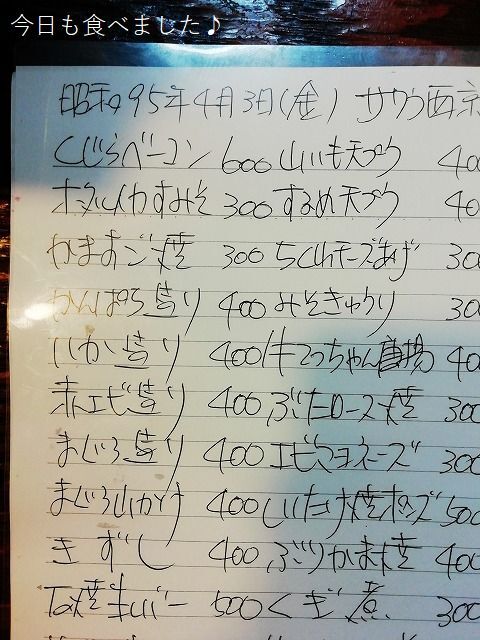 今日も食べました♪
昭和95年4月3日(金) サワラ西京
くじらベーコン 600 山いも天プラ 400
ホタルイカすみそ 300 するめ天プラ 400
かますご焼 300 ちくわチーズあげ 300
かんぱち造り 400 みそきゅうり 300
いか造り 400 牛てっちゃん 400
赤エビ造り 400 ぶたロース焼 300
まぐろ造り 400 エビマヨネーズ 300
まぐろ山かけ 400 しいたけ焼ポンズ 500
きずし 400 ぶりかま焼 400
焼生レバー 500 くぎ煮 300